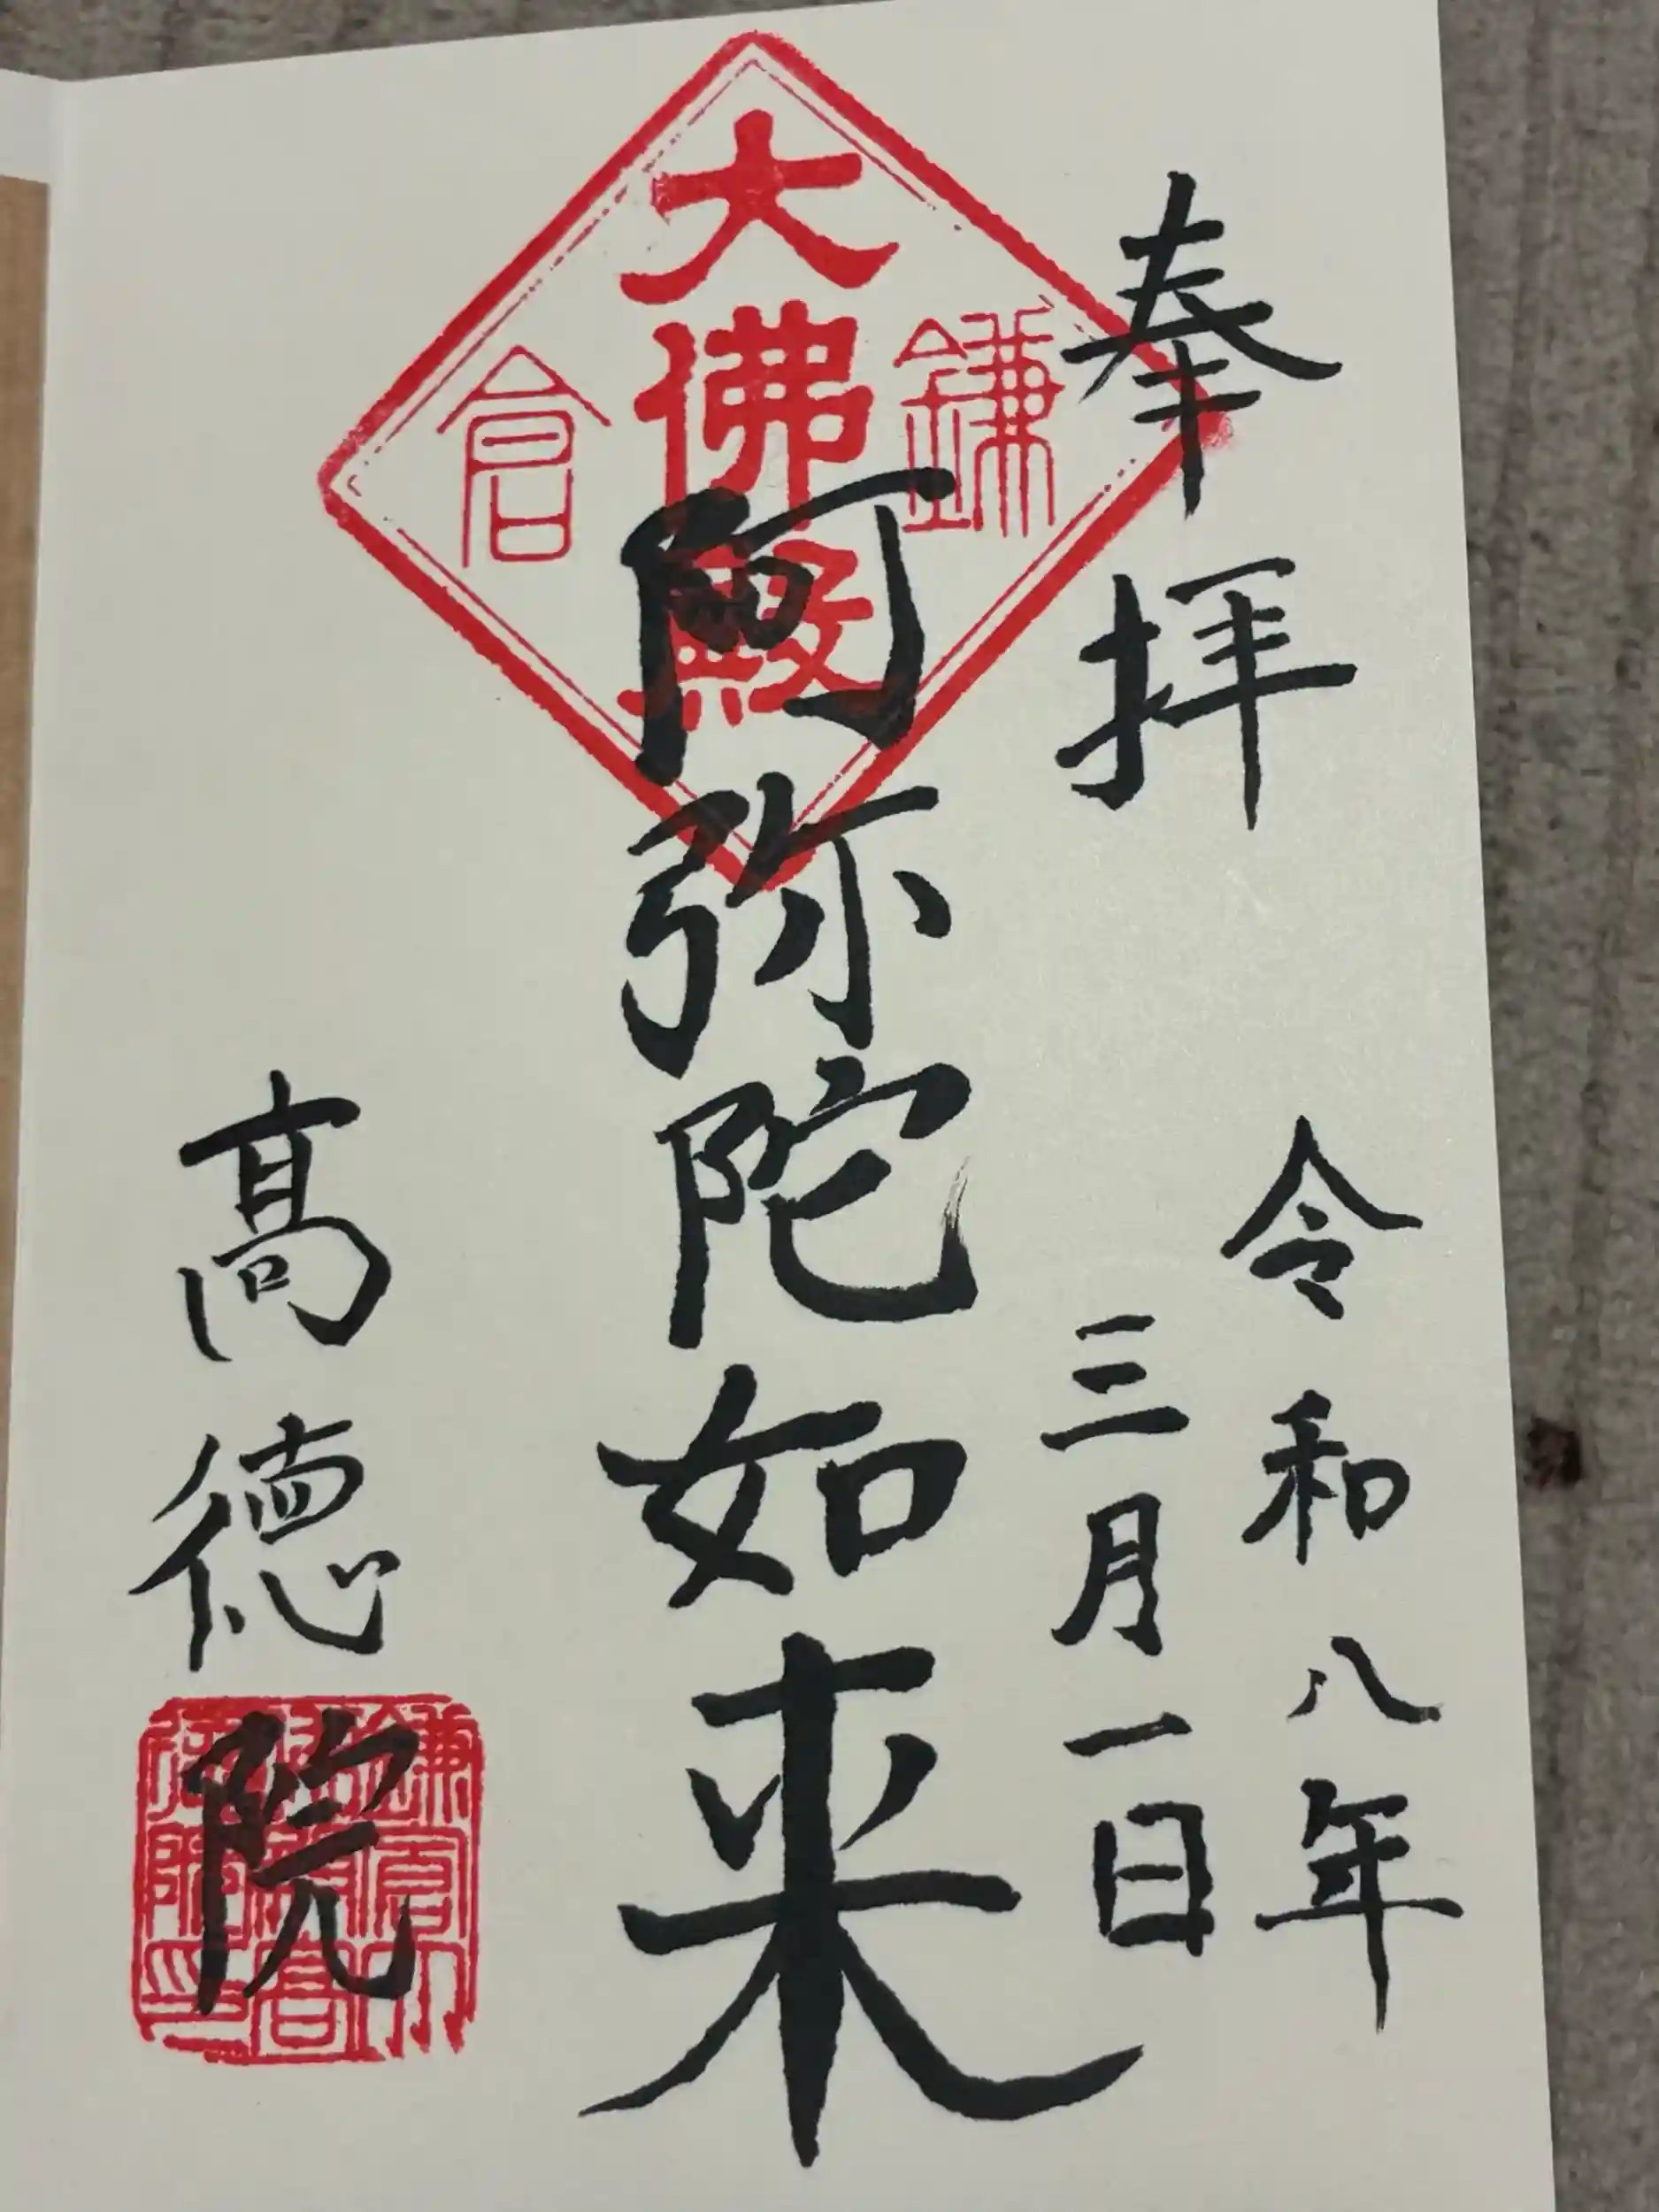 奉拝
令和八年
三月一日
鎌倉
大佛殿
阿弥陀如来
高徳院